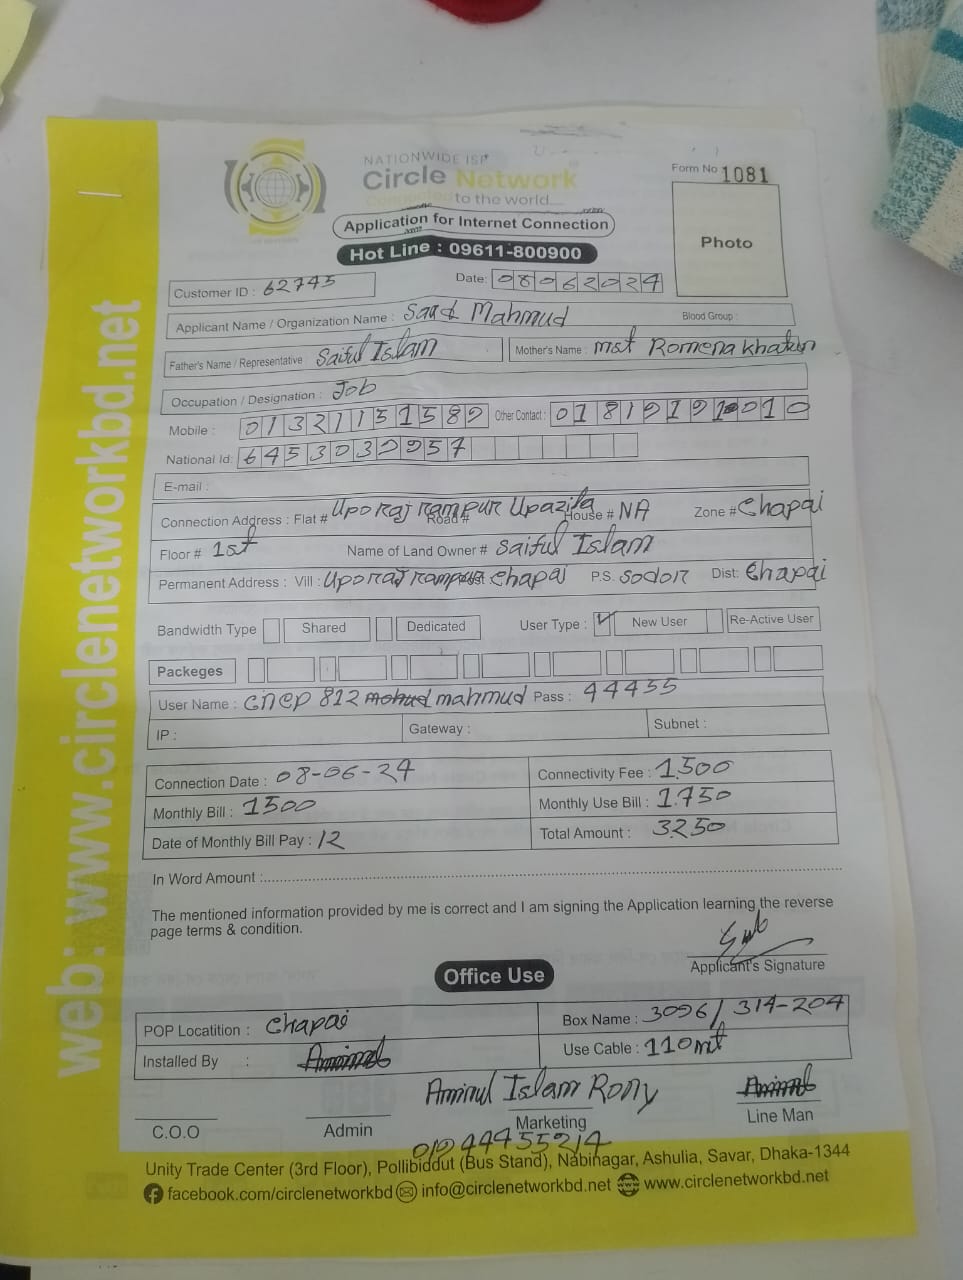 NATIONWIDE ISP
Circle Network
Connected to the world....
Form No 1081
Application for Internet Connection
Hot Line : 09611-800900
Photo
Customer ID : 62745 Date: 08062024
Applicant Name / Organization Name : Saad Mahmud Blood Group :
Father's Name / Representative Saiful Islam Mother's Name : mst Romena khatun
Occupation / Designation : Job
Mobile : 01321151589 Other Contact : 01819191010
National Id: 6453039957
E-mail :
Connection Address : Flat # Upo raj rampur Upazila Road # House # NA Zone # Chapai
Floor # 1st Name of Land Owner # Saiful Islam
Permanent Address : Vill : Upo raj rampur Chapai P.S. Sodor Dist: Chapai
Bandwidth Type Shared Dedicated User Type : New User Re-Active User
Packeges
User Name : cnep 812 mahmud Pass : 44455
IP : Gateway : Subnet :
Connection Date : 08-06-24 Connectivity Fee : 1500
Monthly Bill : 1500 Monthly Use Bill : 1750
Date of Monthly Bill Pay : 12 Total Amount : 3250
In Word Amount :
The mentioned information provided by me is correct and I am signing the Application learning the reverse
page terms & condition.
Applicant's Signature
Office Use
POP Locatition : Chapai Box Name : 3096/ 314-204
Installed By : Use Cable : 110mt
Aminul Islam Rony
C.O.O Admin Marketing Line Man
Unity Trade Center (3rd Floor), Pollibiddut (Bus Stand), Nabinagar, Ashulia, Savar, Dhaka-1344
facebook.com/circlenetworkbd info@circlenetworkbd.net www.circlenetworkbd.net
web: www.circlenetworkbd.net